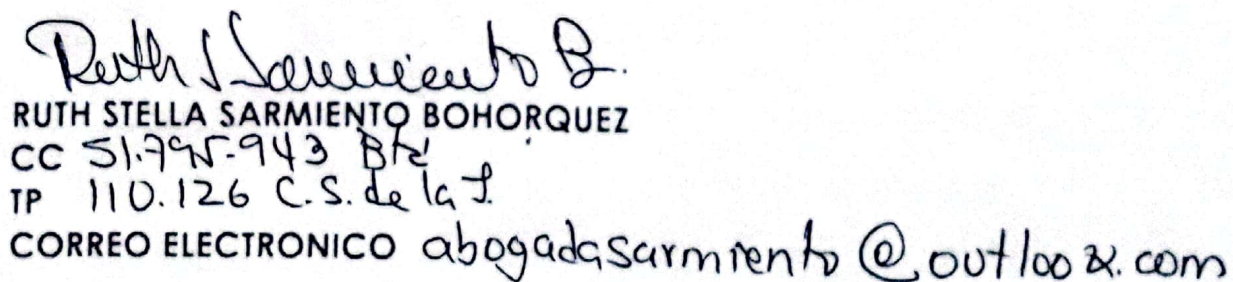 Ruth S Sarmiento B.
RUTH STELLA SARMIENTO BOHORQUEZ
CC 51.795.943 Bta
TP 110.126 C.S. de la J.
CORREO ELECTRONICO abogadasarmiento@outlook.com